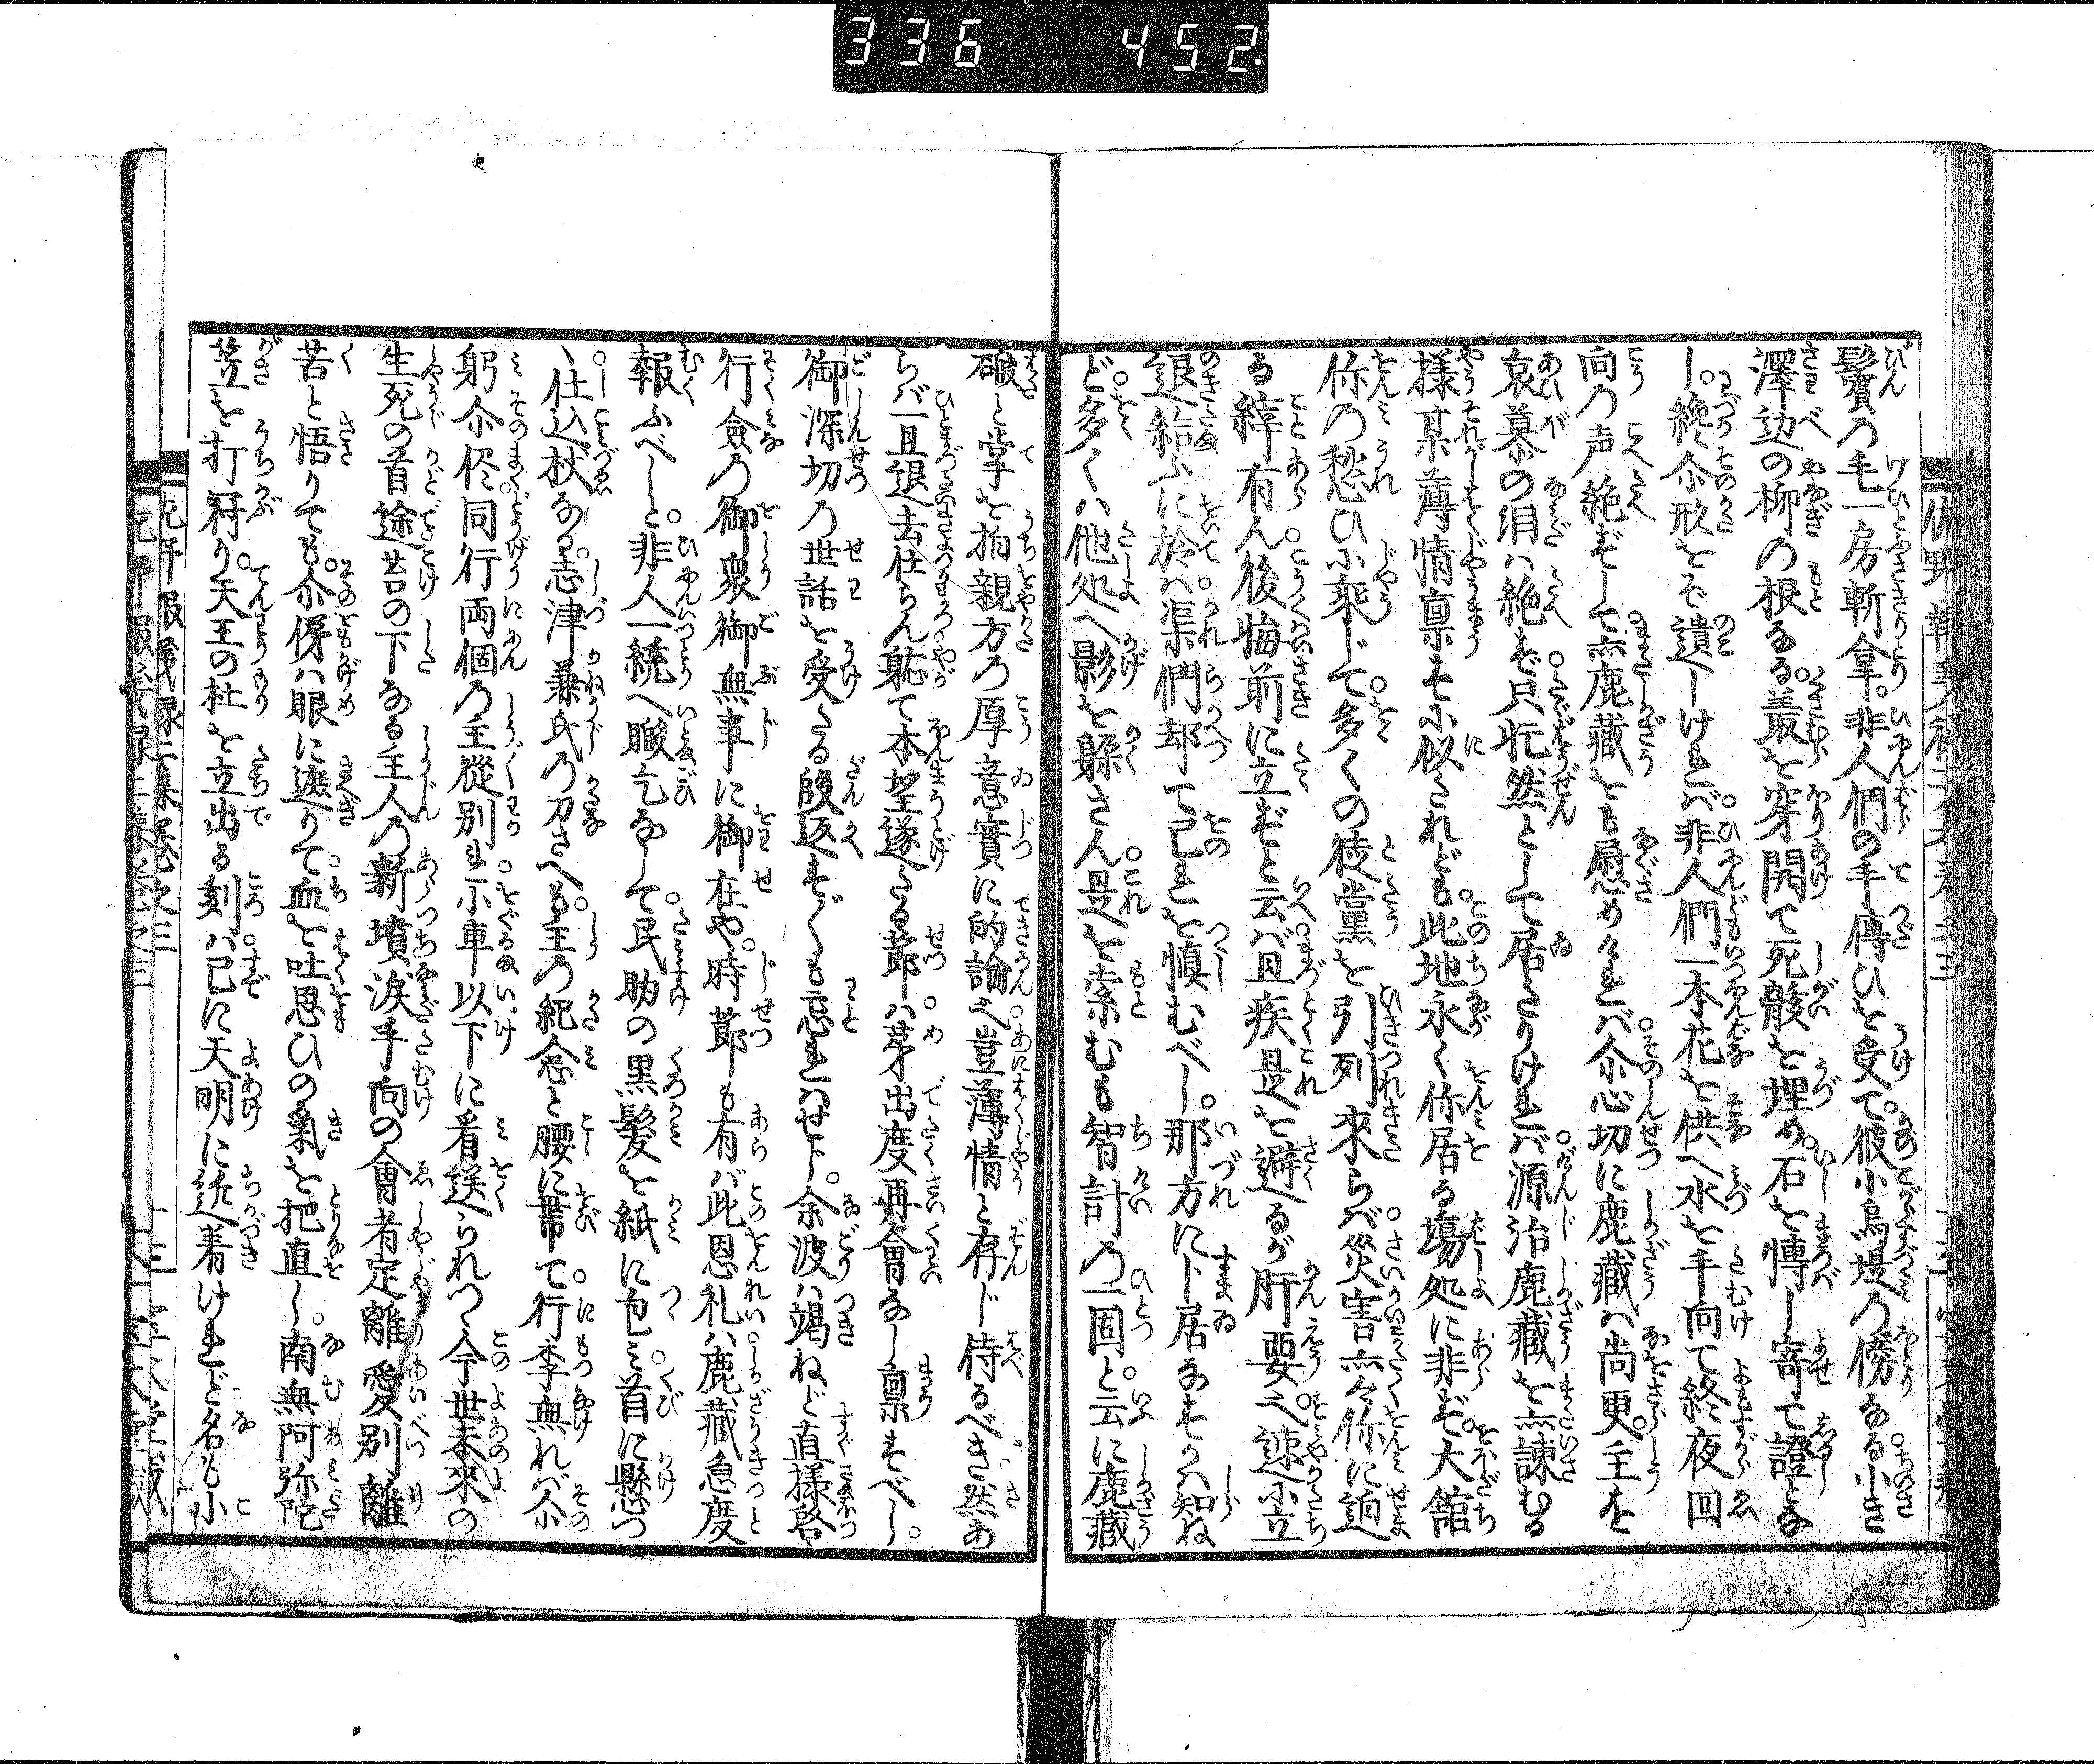 336 452
鬢の毛一房斬拿。非人們の手傳ひを受て。彼小烏堤の傍なる。小き
澤辺の柳の根なる。叢を穿開て死骸を埋め。石を轉し寄て證とな
し。纔尒形をぞ遺しけれバ。非人們一本花を供へ水を手向て終夜回
向の声絶ずして。亦鹿藏をも慰めけれバ。尒心切に鹿藏ハ尚更。主を
哀慕の泪ハ絶ず。只忙然として居たりけれバ。源治鹿藏を亦諫むる
様。某薄情稟すに似たれども。此地永く你居る場処に非ず。大舘
你の愁ひに乘じて。多くの徒黨を引列來らバ。災害亦你に迫
る縡有ん。後悔前に立ずと云バ。且疾是を避るが肝要之。速に立
退給ふに於ハ。渠們却て己れを愼むべし。那方に卜居なすかハ知ね
ど。多くハ他処へ影を躱さん。是を索むも智計の一固と。云に鹿藏
礑と掌を拍親方の厚意實に的論之。豈薄情と存じ侍るべき。然あ
らバ一旦退去仕らん。躮て本望遂たる節ハ。芽出度再會なし稟すべし。
御深切の世話を受たる。殷返すがへすも忘れハせじ。余波ハ竭ねど直様啓
行。僉の御衆御無事に御在や。時節も有バ此恩礼ハ。鹿藏急度
報ふべしと。非人一統へ暇乞なして。民助の黒髮を紙に包み。首に懸つ
ゝ仕込杖なる。志津兼氏の刀さへも。主の紀念と腰に帶て。行李無れバ尒
躬尒侭。同行両個の主從別れ。小車以下に看送られつゝ。今世未來の
生死の首途。苔の下なる主人の新墳。涙手向の會者定離。愛別離
苦と悟りても。尒俤ハ眼に遮りて。血を吐思ひの氣を把直し。南無阿弥陀
笠を打冠り。天王の杜を立出る刻ハ。已に天明に近着けれど。名も小